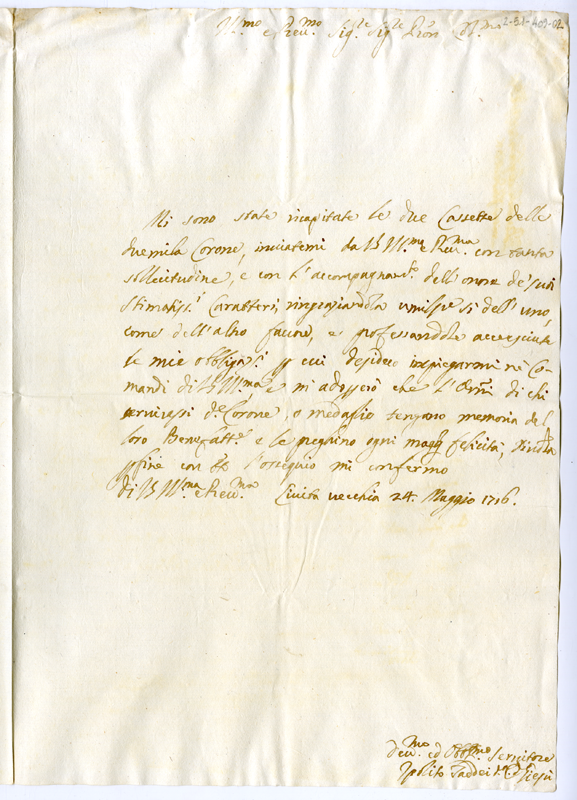 Ill.mo e Rev.mo Sig.re Sig.re Pron Col.mo
2-31-409-02
Mi sono state ricapitate le due Cassette delle
duemila Corone, inviatemi da V.S. Ill.ma e Rev.ma con tanta
sollecitudine, e con l'accompagnam.to dell'onore de' suoi
stimatiss.i Caratteri, ringraziandola umilissi dell'uno,
come dell'altro favore, e professandole accresciute
le mie obbligaz.i p cui desidero impiegarmi nè Co-
mandi di V.S. Ill.ma, e mi adoprerò che l' di chi
servirassi d.e Corone, o medaglie tengano memoria del
loro Benefatt.e e le preghino ogni magg felicità,
p fine con tt.o l'ossequio mi confermo
di V.S. Ill.ma e Rev.ma Civita vecchia 24. Maggio 1716.
Dev.mo ed Obb.mo Servitore
Ipolito Taddei